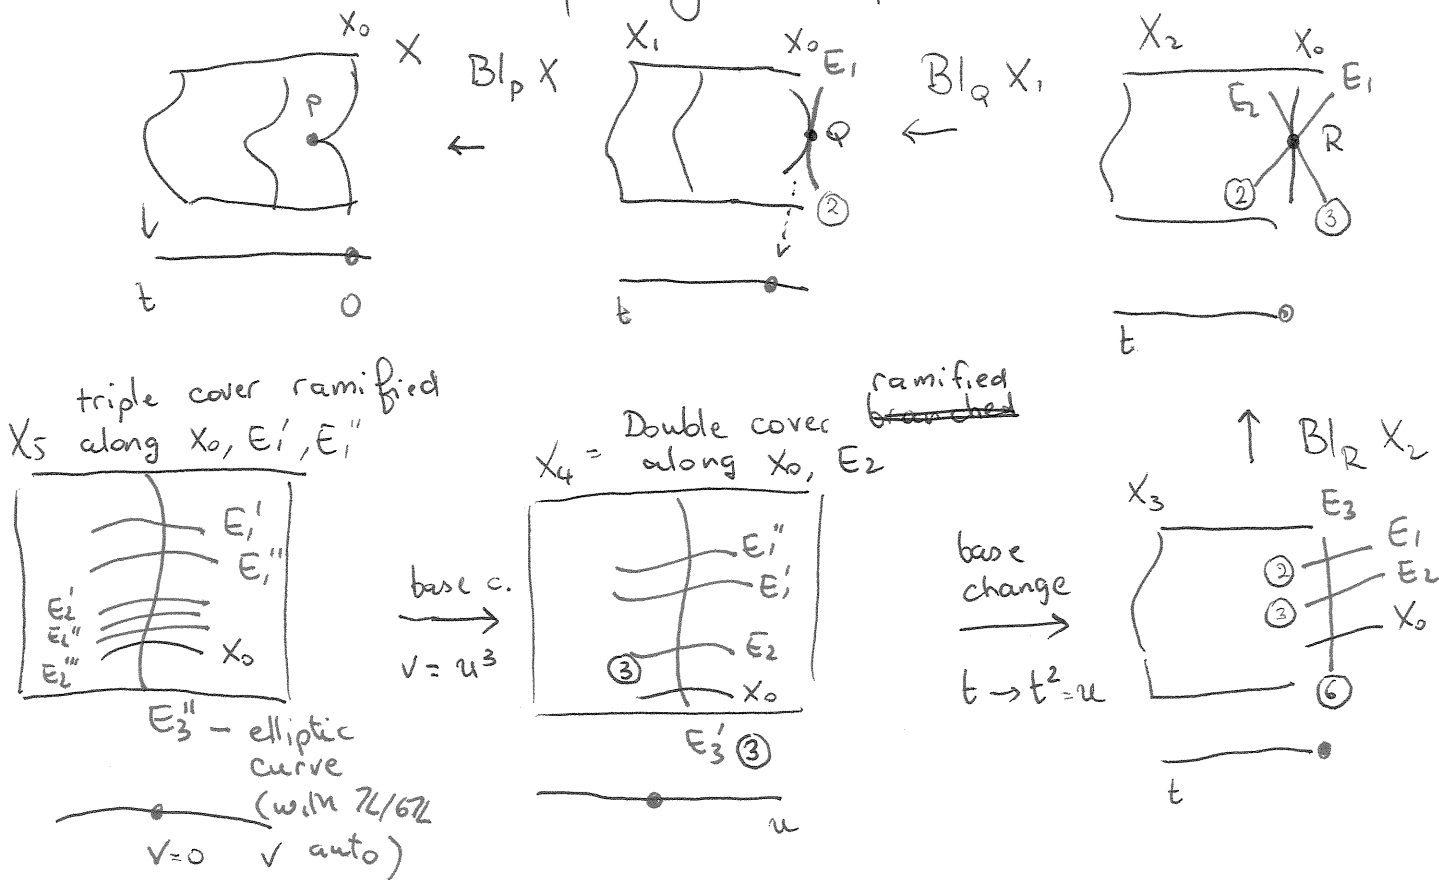 X₀ X
P
t 0
Bl_P X
←
X₁ X₀ E₁
Q
②
t
Bl_Q X₁
←
X₂ X₀ E₁
E₂
R
② ③
t
↑ Bl_R X₂
X₃ E₃
E₁
② E₂
③ X₀
⑥
t
base
change
→
t → t² = u
ramified
Double cover
X₄ = along X₀, E₂
E₁''
E₁'
E₂
③
X₀
E₃' ③
u
base c.
→
v = u³
triple cover ramified
X₅ along X₀, E₁', E₁''
E₁'
E₁''
E₂'
E₂''
E₂'''
X₀
E₃'' – elliptic
curve
(with ℤ/6ℤ
auto)
v=0 v